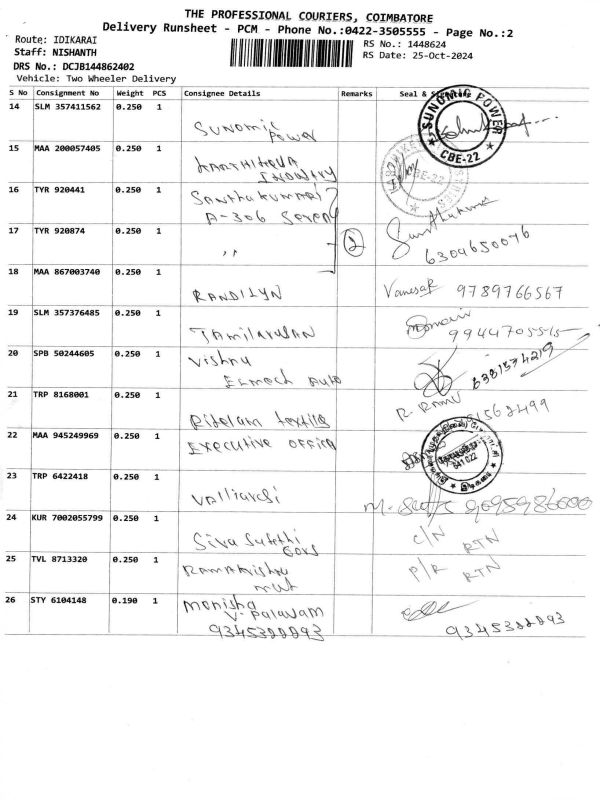 THE PROFESSIONAL COURIERS, COIMBATORE
Delivery Runsheet - PCM - Phone No.:0422-3505555 - Page No.:2
Route: IDIKARAI
RS No.: 1448624
Staff: NISHANTH
RS Date: 25-Oct-2024
DRS No.: DCJB144862402
Vehicle: Two Wheeler Delivery
S No Consignment No Weight PCS Consignee Details Remarks Seal & Signature
14 SLM 357411562 0.250 1
SUNOMIC POWER
CBE-22
Sunomic
Power
15 MAA 200057405 0.250 1
CBE-22
16 TYR 920441 0.250 1
Santhakumari
A-306 Sereny
17 TYR 920874 0.250 1
,, 2
6304650076
18 MAA 867003740 0.250 1
RANDILYN
9789766567
19 SLM 357376485 0.250 1
TAMILARASAN
9944705515
20 SPB 50244605 0.250 1
Vishnu
Auto
6381574219
21 TRP 8168001 0.250 1
textile
R. RAMU
22 MAA 945249969 0.250 1
Executive officer
641 022
23 TRP 6422418 0.250 1
Valliarasi
9095986000
24 KUR 7002055799 0.250 1
Siva
C/N
RTN
25 TVL 8713320 0.250 1
Ramakrishna
P/R RTN
26 STY 6104148 0.190 1
Monisha
V. Palayam
9345388893
9345388893